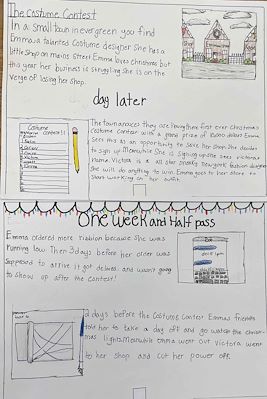 The Costume Contest
In a small town in evergreen you find
Emma, a talanted Costume designer She has a
little Shop on mains street Emma loves christmas but
this year her business is struggling She is on the
verge of losing her Shop.
day later
Costume
The town announced They are having their first ever Christmas
costume contest with a grand prize of 10,000 dollars Emma
Sees this as an opportunity to save her shop. She decides
to sign up. Meanwhile She is signing up She sees victoria's
name. Victoria is a all star sneaky newyork fashion designer
She will do anything to win. Emma goes to her store to
Start working on her outfit.
One week and Half pass
Emma ordered more ribbion because She was
running low. Then 3 days before her order was
Supposed to arrive it got delayed. and wasn't going
to show up after the contest!
2 days before the Costume Contest Emmas friends
told her to take a day off and go watch the christ-
mas lights. Meanwhile Emma went out victora went
to her shop and cut her power off.